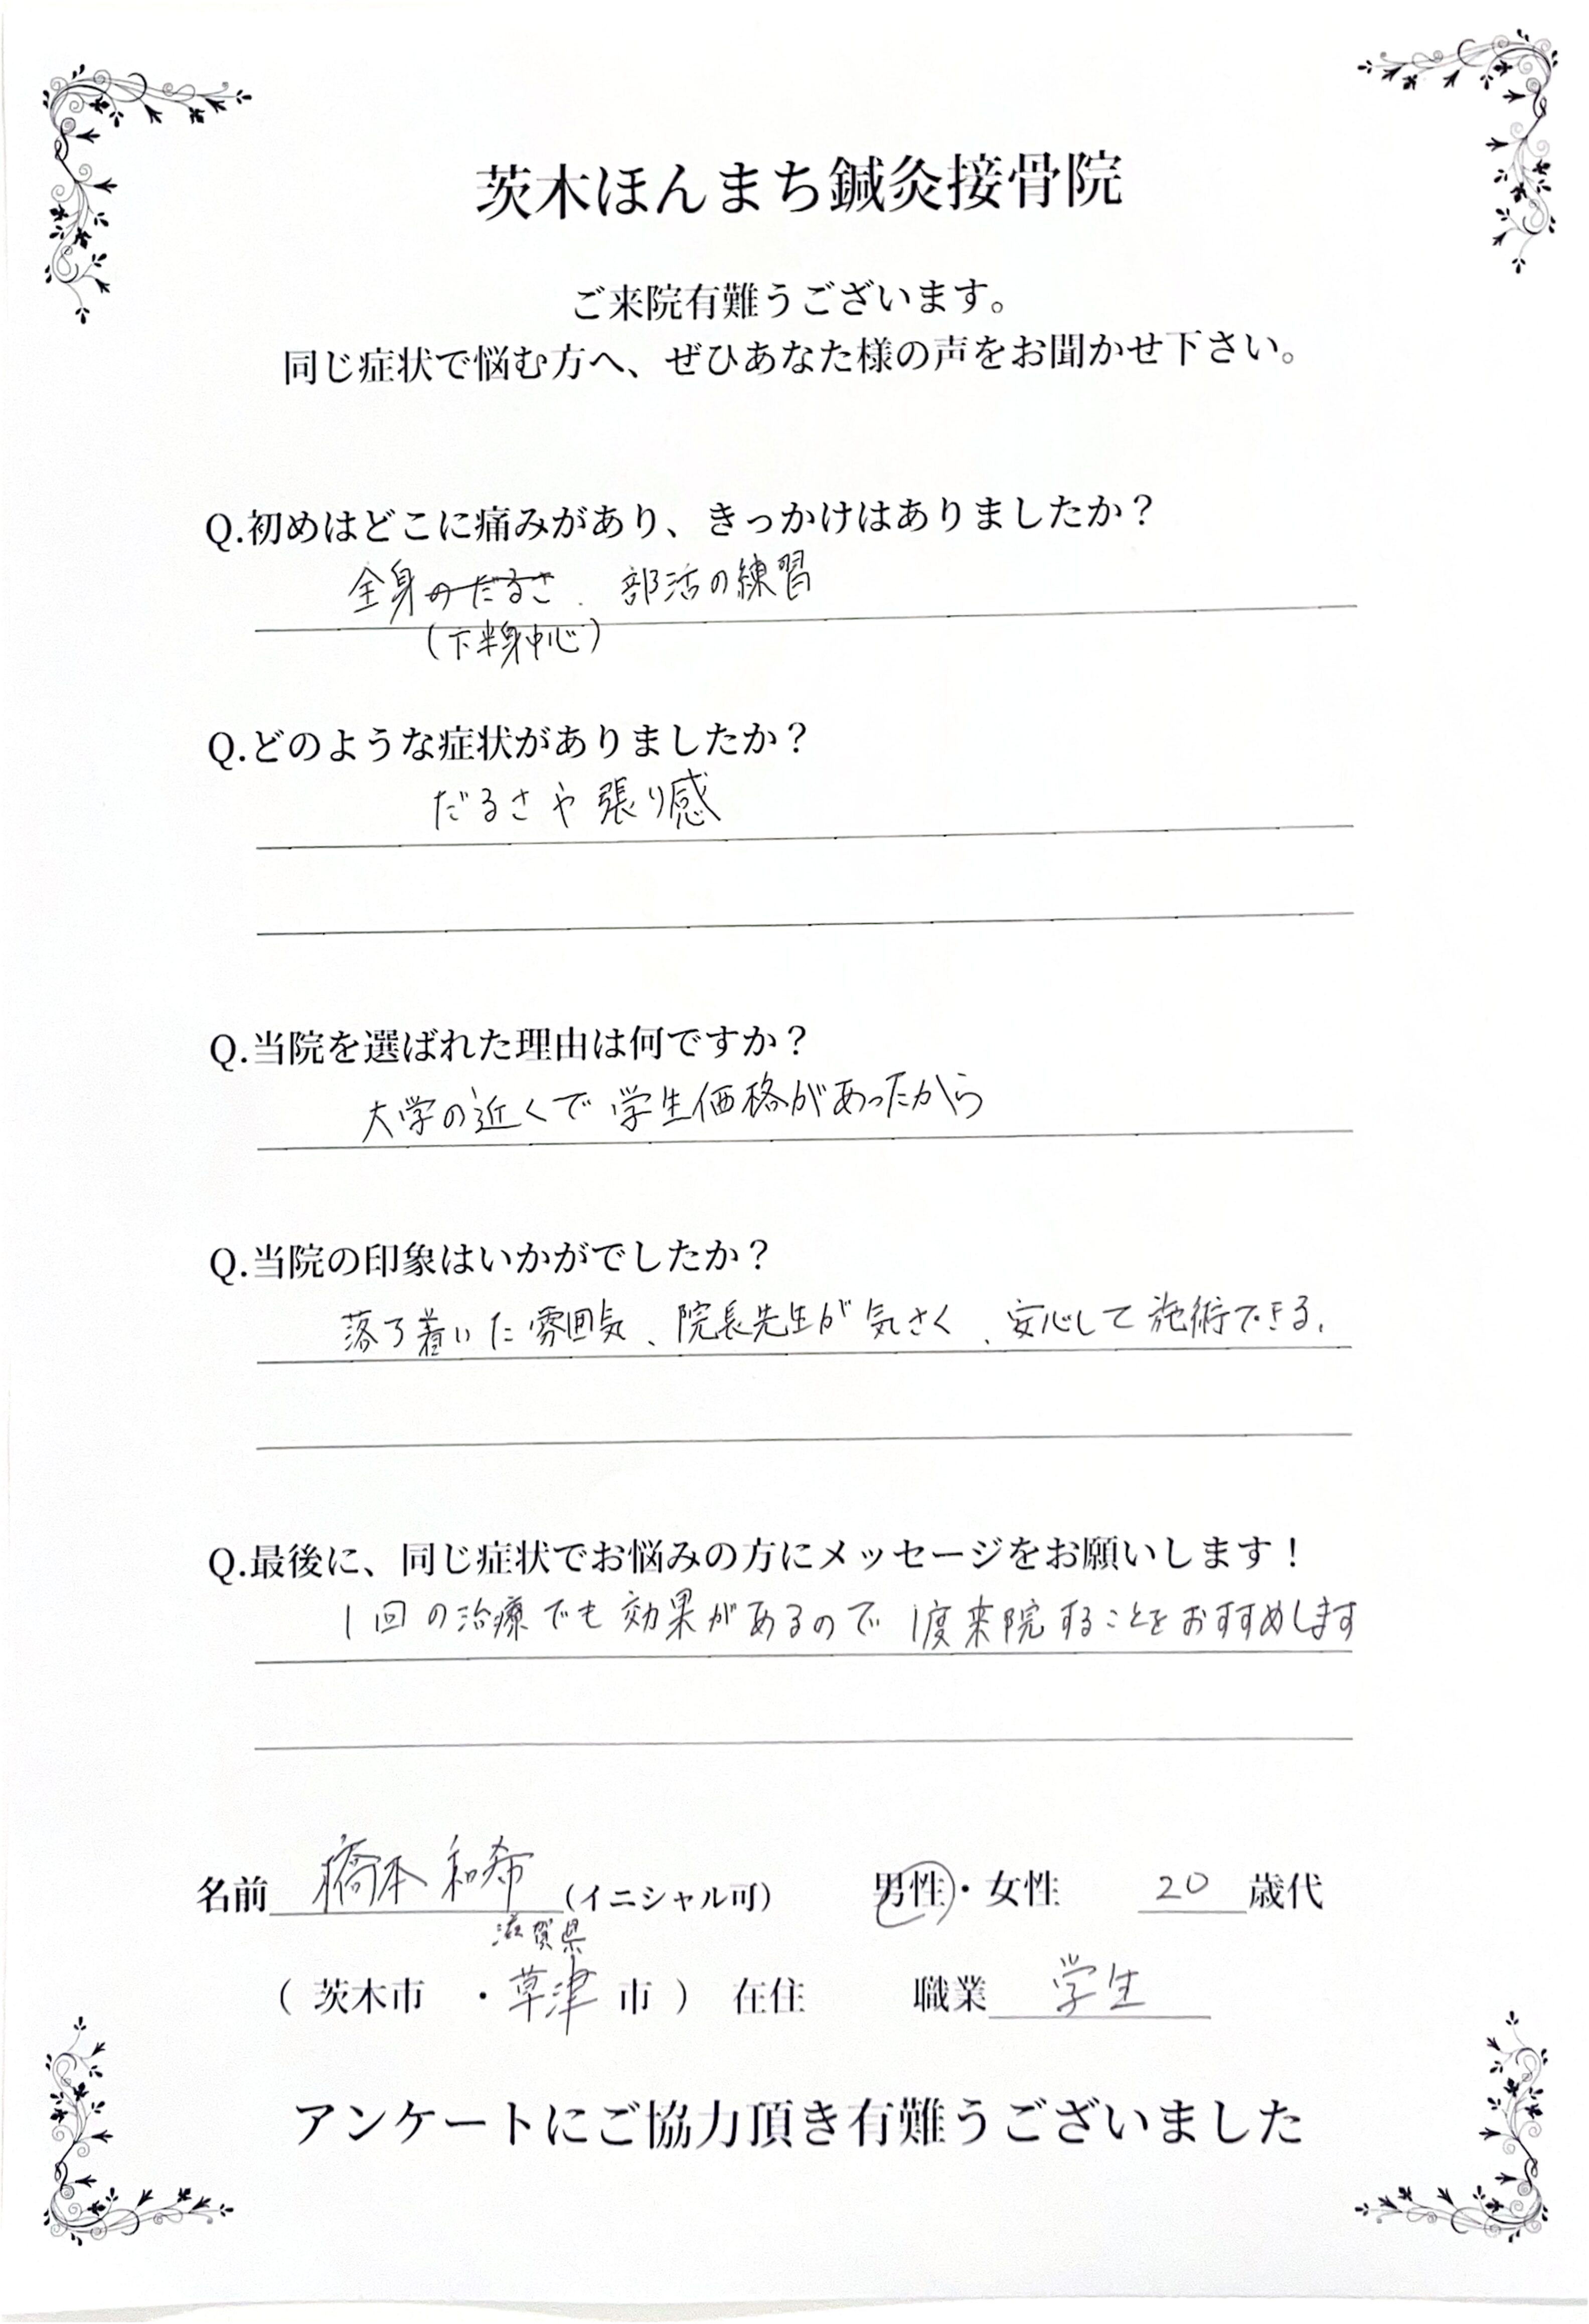 茨木ほんまち鍼灸接骨院
ご来院有難うございます。
同じ症状で悩む方へ、ぜひあなた様の声をお聞かせ下さい。
Q.初めはどこに痛みがあり、きっかけはありましたか？
全身のだるさ、部活の練習
(下半身中心)
Q.どのような症状がありましたか？
だるさや張り感
Q.当院を選ばれた理由は何ですか？
大学の近くで学生価格があったから
Q.当院の印象はいかがでしたか？
落ち着いた雰囲気、院長先生が気さく、安心して施術できる、
Q.最後に、同じ症状でお悩みの方にメッセージをお願いします！
1回の治療でも効果があるので1度来院することをおすすめします
名前 橋本和希 (イニシャル可) 男性・女性 20 歳代
滋賀県
( 茨木市 ・草津 市 ) 在住 職業 学生
アンケートにご協力頂き有難うございました